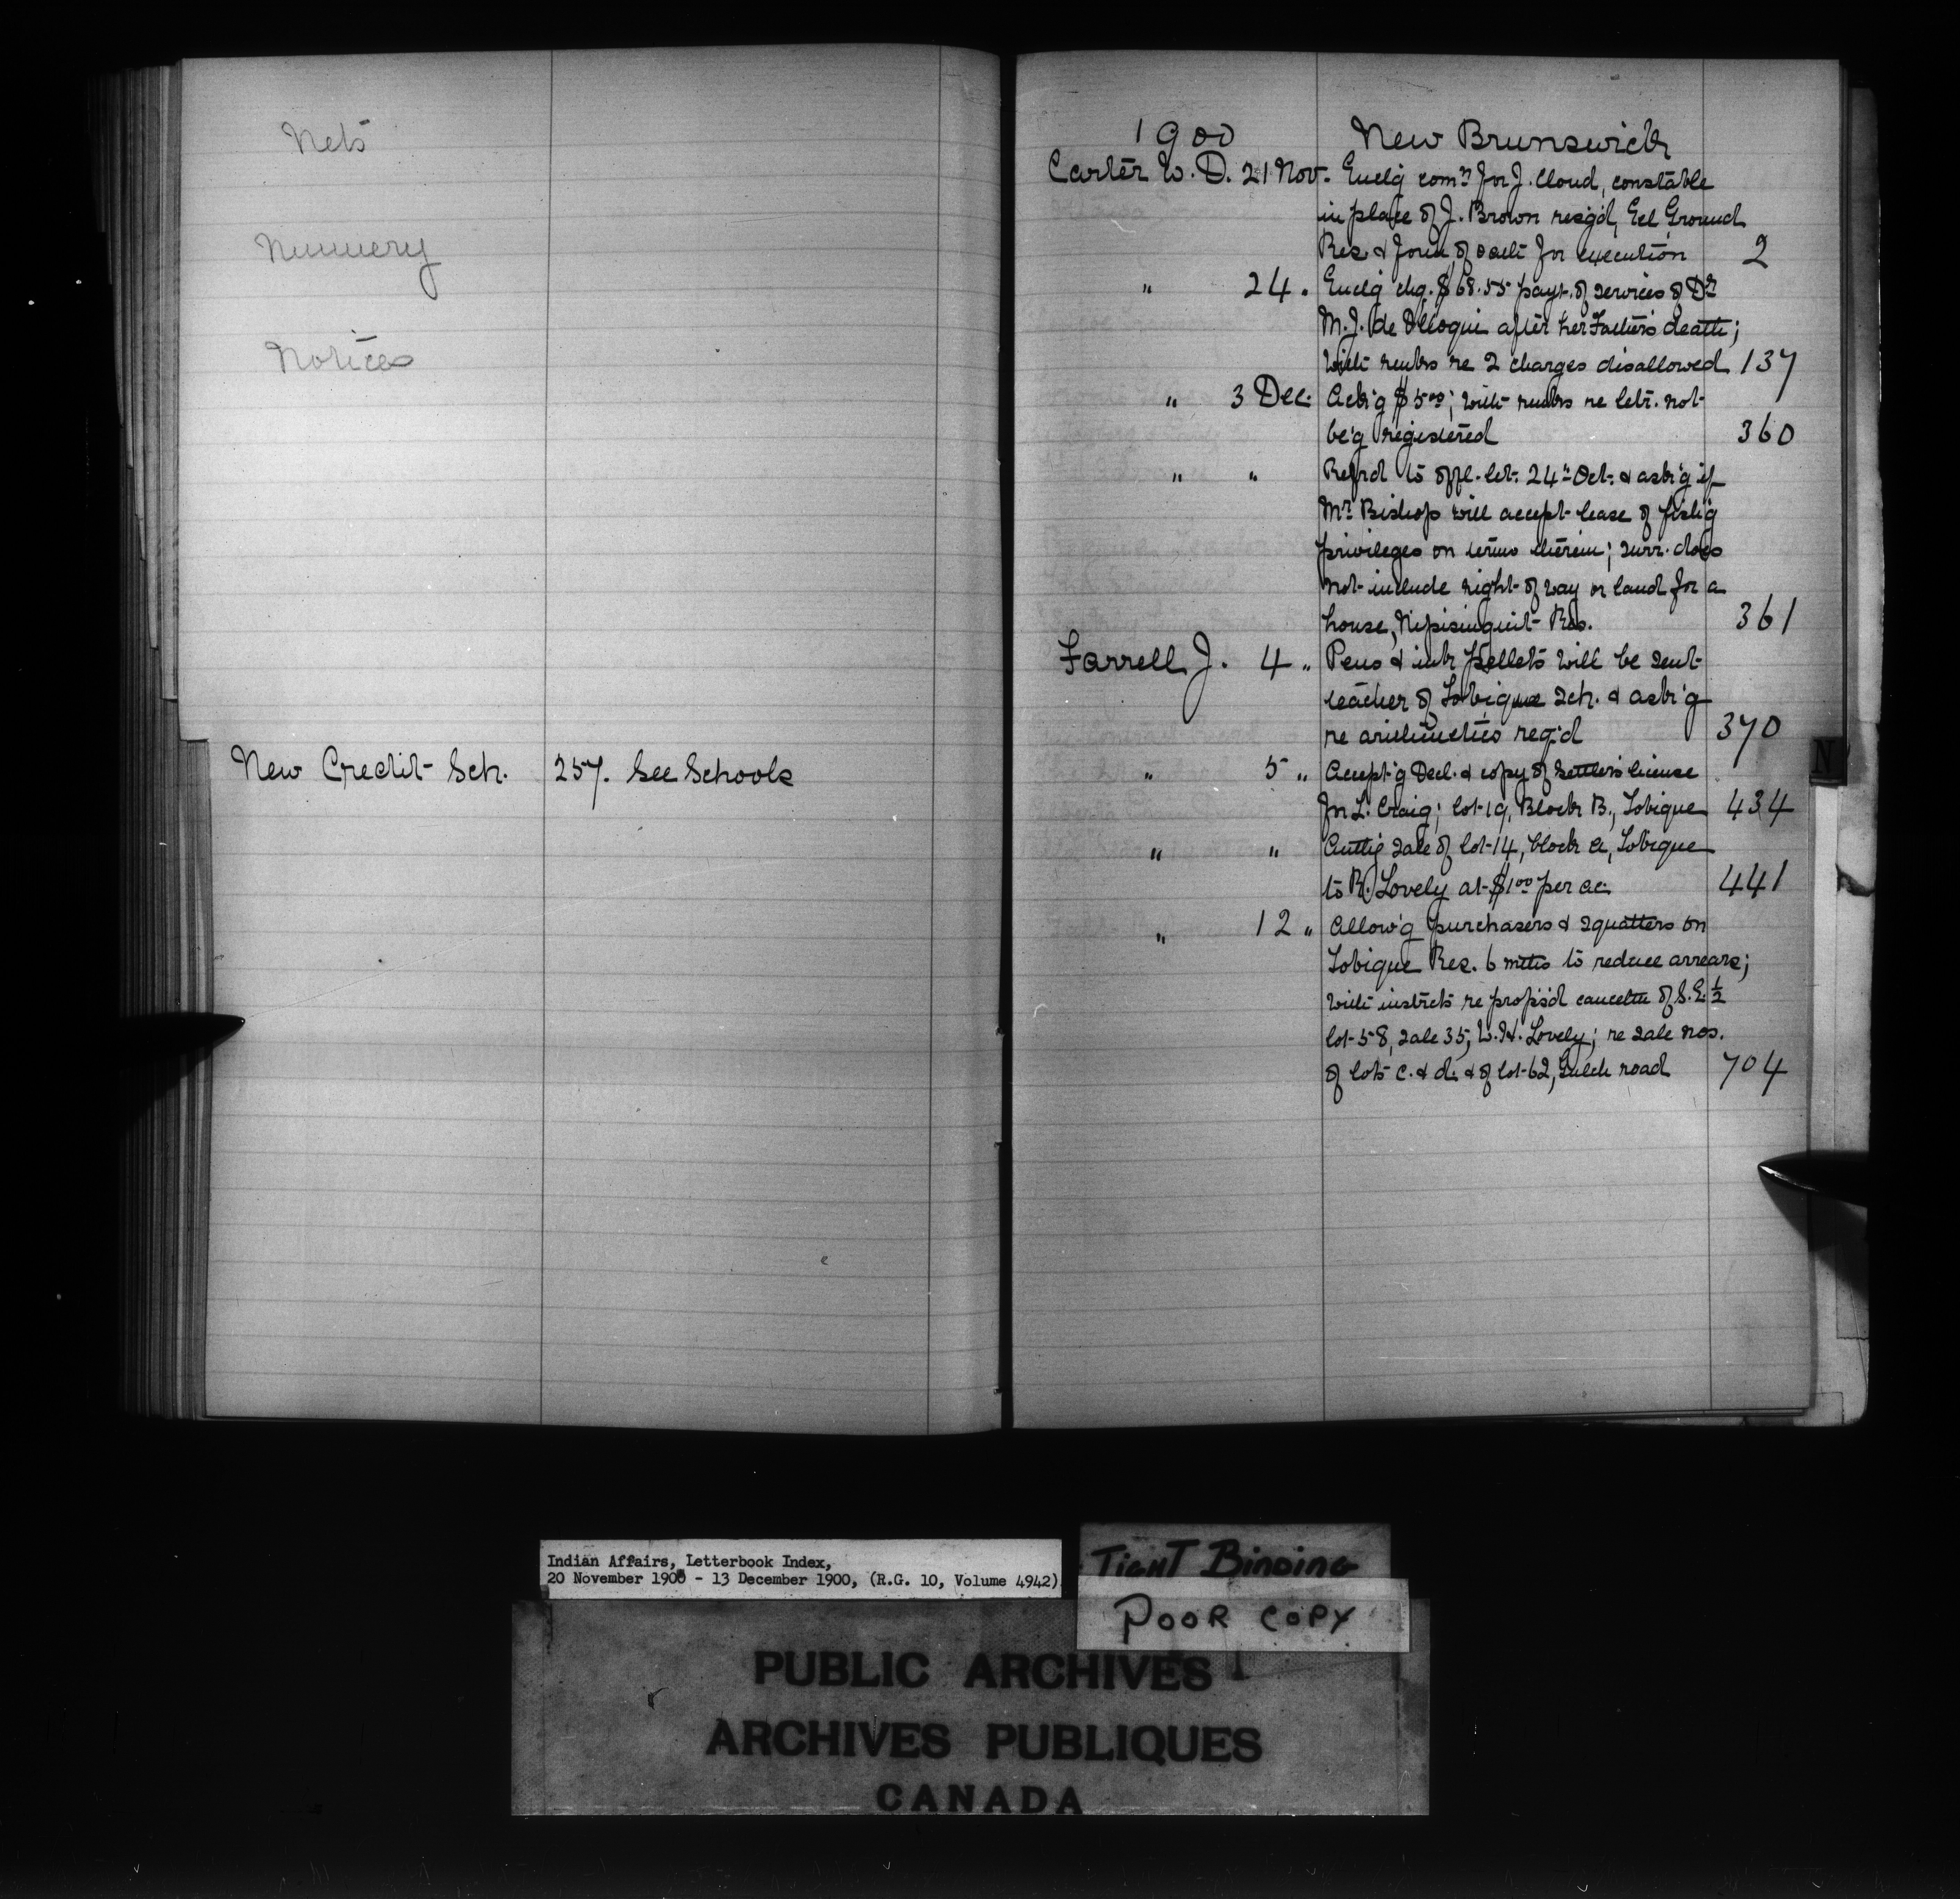 Nets
Nunnery
Notices
New Credit Sch. 257. See Schools
1900 New Brunswick
Carter W. D. 21 Nov. Encl'g com'n for J. Cloud, constable
in place of J. Brown resg'd, Eel Ground
Res. & form of oath for execution 2
" 24 " Encl'g chq. $68.55 payt. of services of Dr
M. J. de Olloqui after her Father's death;
With remks re 2 charges disallowed 137
" 3 Dec. Ack'g $5.00; with remks re letr. not
be'g registered 360
" " Refrd to offl. let. 24th Oct. & ask'g if
Mr Bishop will accept lease of fish'g
privileges on terms therein; surr. does
not include right of way or land for a
house, Nipisinquit Res. 361
Farrell J. 4 " Pens & ink pellets will be sent
teacher of Tobique Sch. & ask'g
re arithmetics req'd 370
" 5 " Accept'g Decl. & copy of settler's license
for L. Craig; lot 19, Block B., Tobique 434
" " Auth'g sale of lot 14, block A, Tobique
to R. Lovely at $1.00 per ac. 441
" 12 " Allow'g purchasers & squatters on
Tobique Res. 6 mths to reduce arrears;
with instrcts re props'd canceltn of S.E. 1/2
lot 58, sale 35, W. H. Lovely; re sale nos.
of lots C. & d. & of lot 62, Gulch road 704
N
Indian Affairs, Letterbook Index,
20 November 1900 - 13 December 1900, (R.G. 10, Volume 4942)
TIGHT BINDING
POOR COPY
PUBLIC ARCHIVES
ARCHIVES PUBLIQUES
CANADA